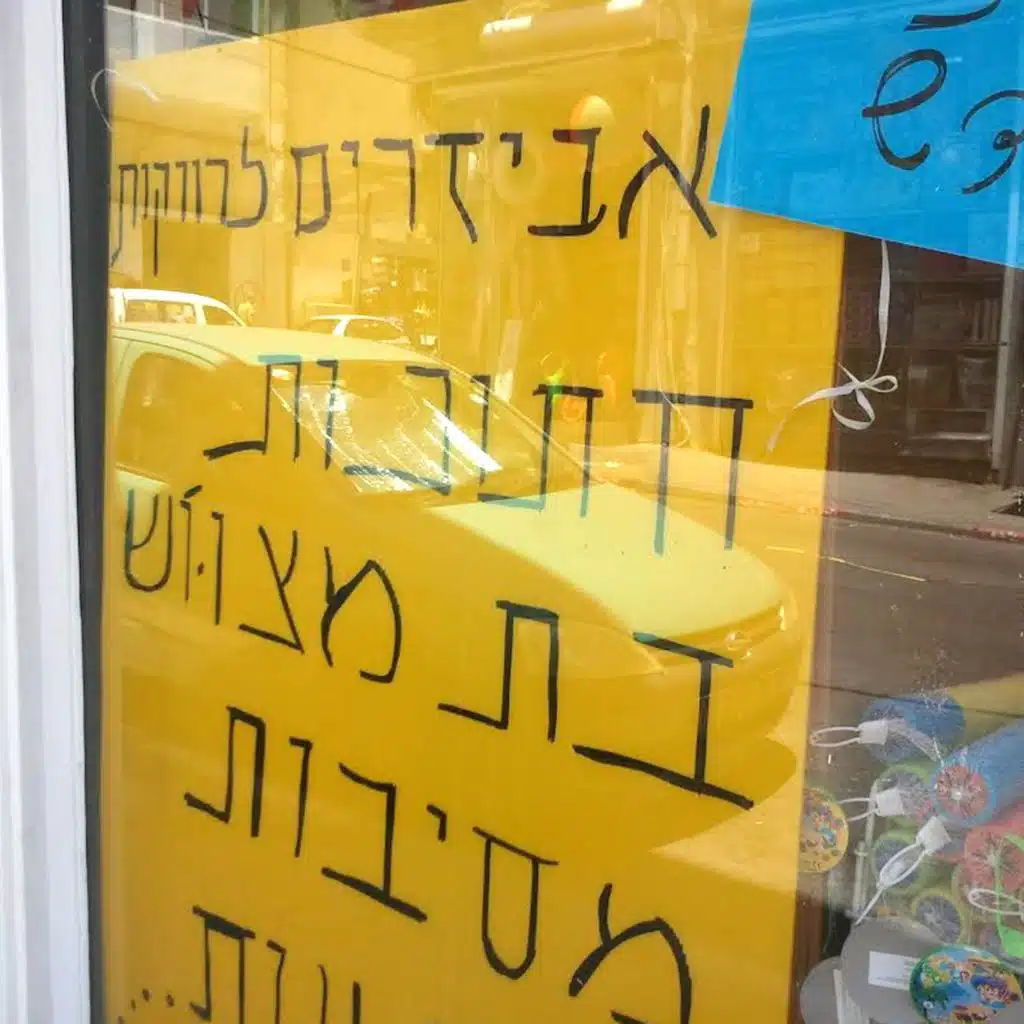 אביזרים לרווקות
חתונות
בת מצוּוֹש
מסיבות